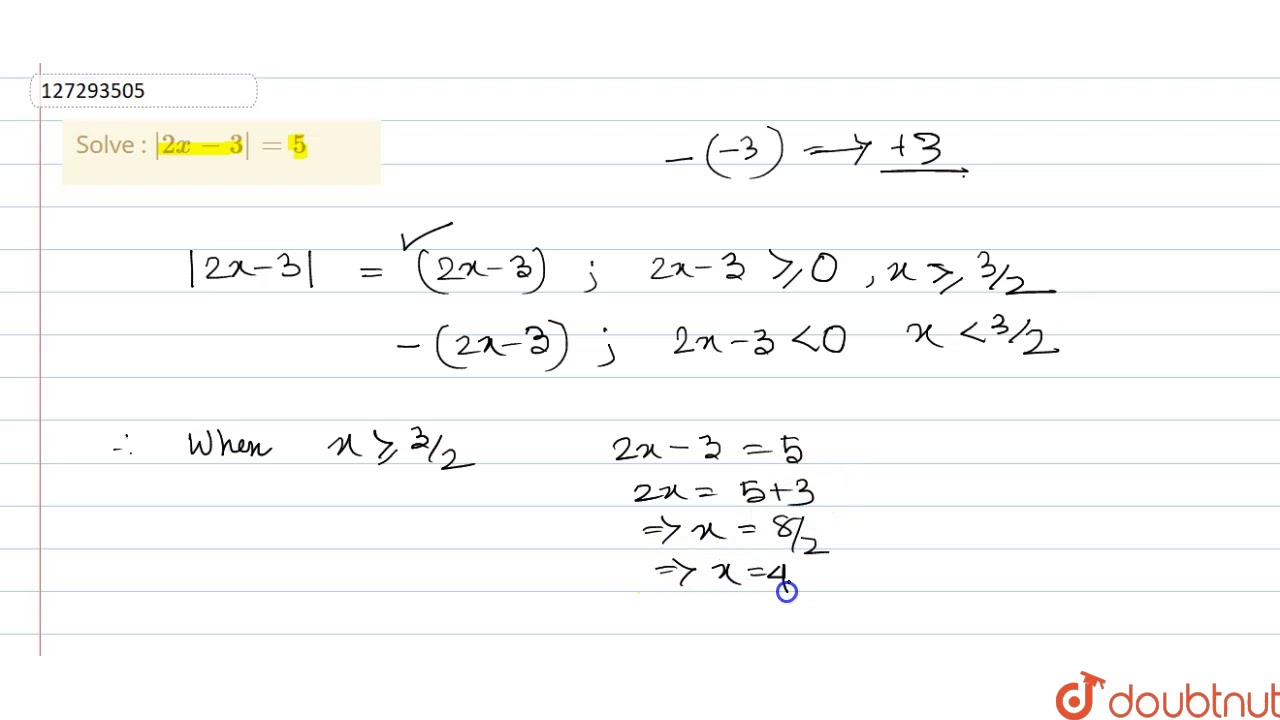 127293505
Solve : |2x − 3| = 5
−(−3) ⟹ +3
|2x−3| = (2x−3) ; 2x−3 ≥ 0 , x ≥ 3/2
−(2x−3) ; 2x−3 < 0 x < 3/2
∴ When x ≥ 3/2 2x−3 = 5
2x = 5+3
⇒ x = 8/2
⇒ x = 4
doubtnut